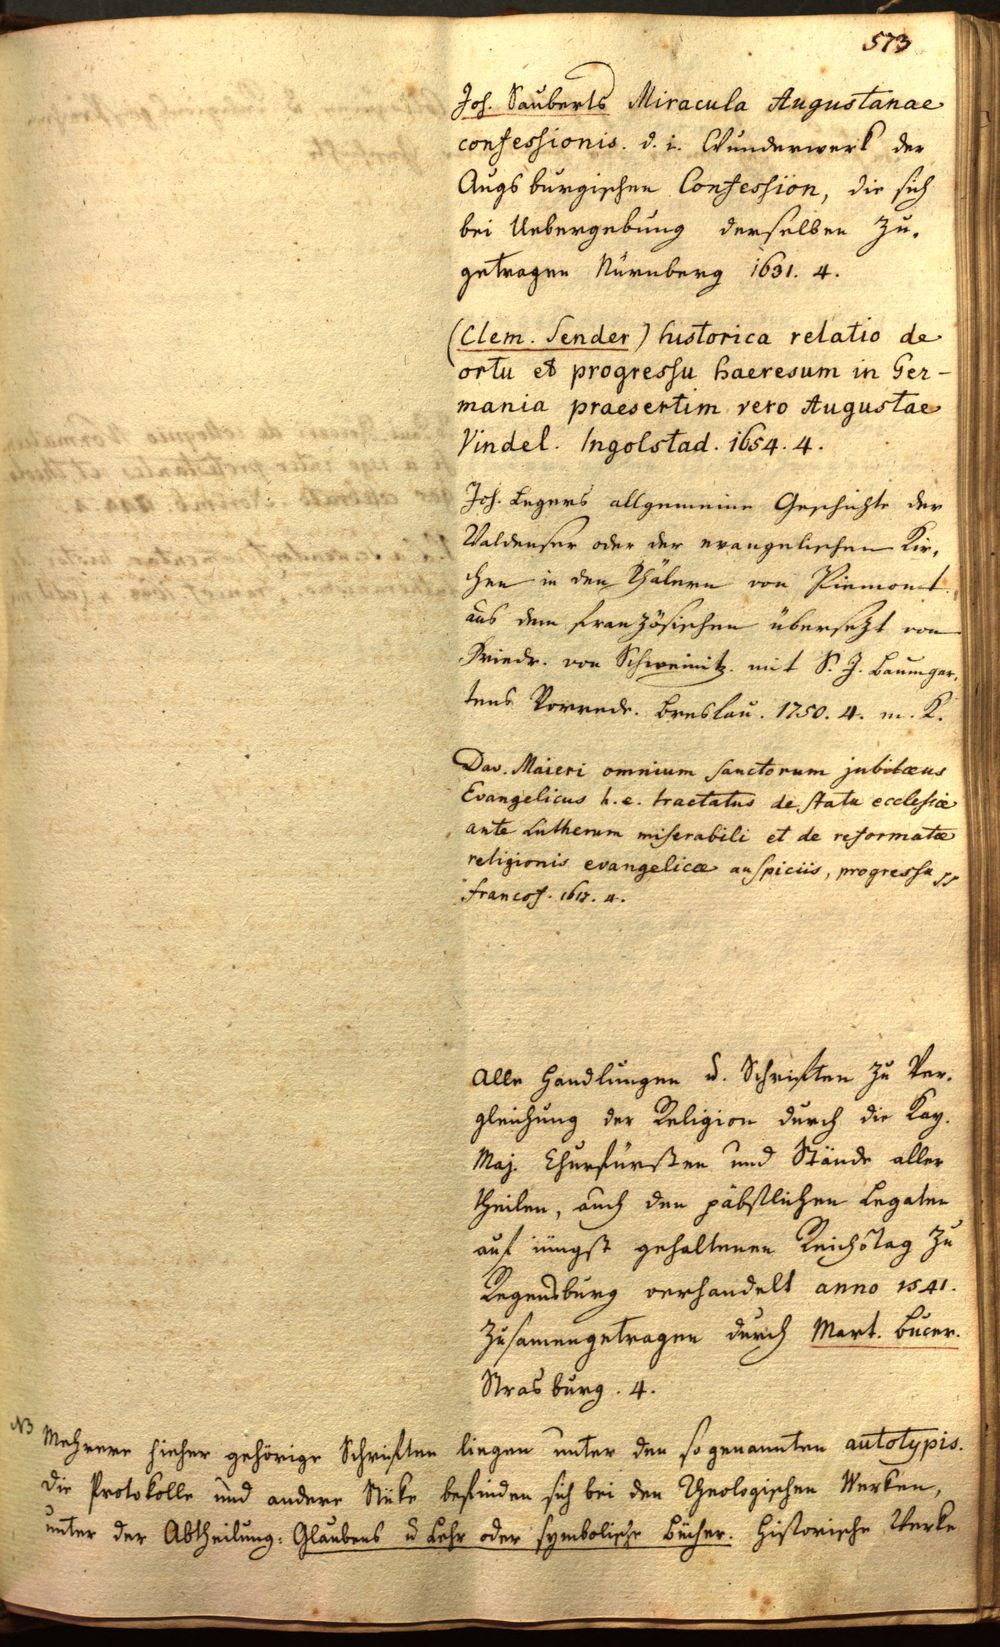 573
Joh. Sauberts Miracula Augustanae
confessionis. d. i. Wunderwerk der
Augsburgischen Confession, die sich
bei Uebergebung derselben zu-
getragen Nürnberg 1631. 4.
(Clem. Sender) historica relatio de
ortu et progressu haeresum in Ger-
mania praesertim vero Augustae
Vindel. Ingolstad. 1654. 4.
Joh. Legers allgemeine Geschichte der
Waldenser oder der evangelischen Kir-
chen in den Thälern von Piemont
aus dem französischen übersezt von
Friedr. von Schweinitz. mit S. J. Baumgar-
tens Vorrede. Breslau. 1750. 4. m. K.
Dav. Maieri omnium sanctorum jubilæus
Evangelicus h. e. tractatus de statu ecclesiæ
ante Lutherum miserabili et de reformatæ
religionis evangelicæ auspiciis, progressu
francof. 1617. 4.
Alle Handlungen u. Schriften zu Ver-
gleichung der Religion durch die Kay.
Maj. Churfürsten und Stände aller
theilen, auch den päbstlichen Legaten
auf jüngst gehaltenen Reichstag zu
Regensburg verhandelt anno 1541.
zusamengetragen durch Mart. Bucer.
Strasburg. 4.
NB Mehrere hieher gehörige Schriften liegen unter den sogenannten autotypis.
die Protokolle und andere Stüke befinden sich bei den Theologischen Werken,
unter der Abtheilung: Glaubens u Lehr oder symbolische Bücher. Historische Werke